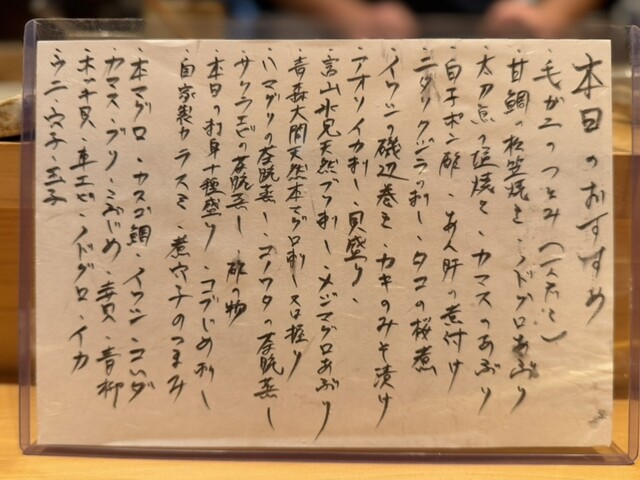 本日のおすすめ
・毛がニのつまみ(一人前)
・甘鯛の松笠焼き・ノドグロあぶり
・太刀魚の塩焼き・カマスのあぶり
・白子ポン酢・あん肝の煮付け
・ニタリクジラ刺し・タコの桜煮
・イワシの磯辺巻き・カキのみそ漬け
・アオリイカ刺し・貝盛り・
・富山氷見天然ブリ刺し・メジマグロあぶり
・青森大間天然本マグロ刺し又は握り
・ハマグリの茶碗蒸し・コノワタの茶碗蒸し
・サクラエビの茶碗蒸し・酢の物
・本日のお刺身十種盛り・コブじめ刺し
・自家製カラスミ・煮穴子のつまみ
・本マグロ・カスゴ鯛・イワシ・コハダ
・カマス・ブリ・こぶじめ・赤貝・青柳
・ホッキ貝・車エビ・ノドグロ・イカ
・ウニ・穴子・玉子